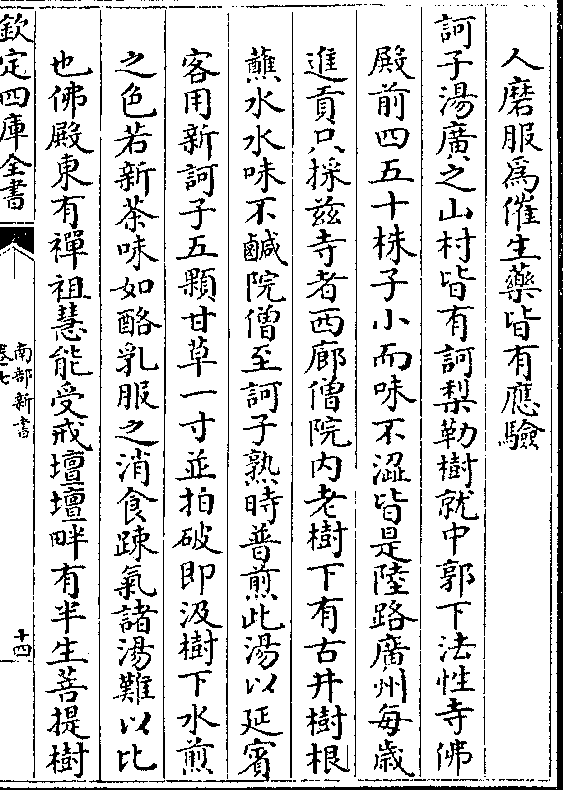 人磨服爲催生藥皆有應驗
訶子湯廣之山村皆有訶梨勒樹就中郭下法性寺佛
殿前四五十株子小而味不澀皆是陸路廣州每歲
進貢只採兹寺者西廊僧院内老樹下有古井樹根
蘸水水味不鹹院僧至訶子熟時普煎此湯以延賓
客用新訶子五顆甘草一寸並拍破即汲樹下水煎
之色若新茶味如酪乳服之消食踈氣諸湯難以比
也佛殿東有禪祖慧能受戒壇壇畔有半生菩提樹
欽定四庫全書
南部新書
卷七
十四